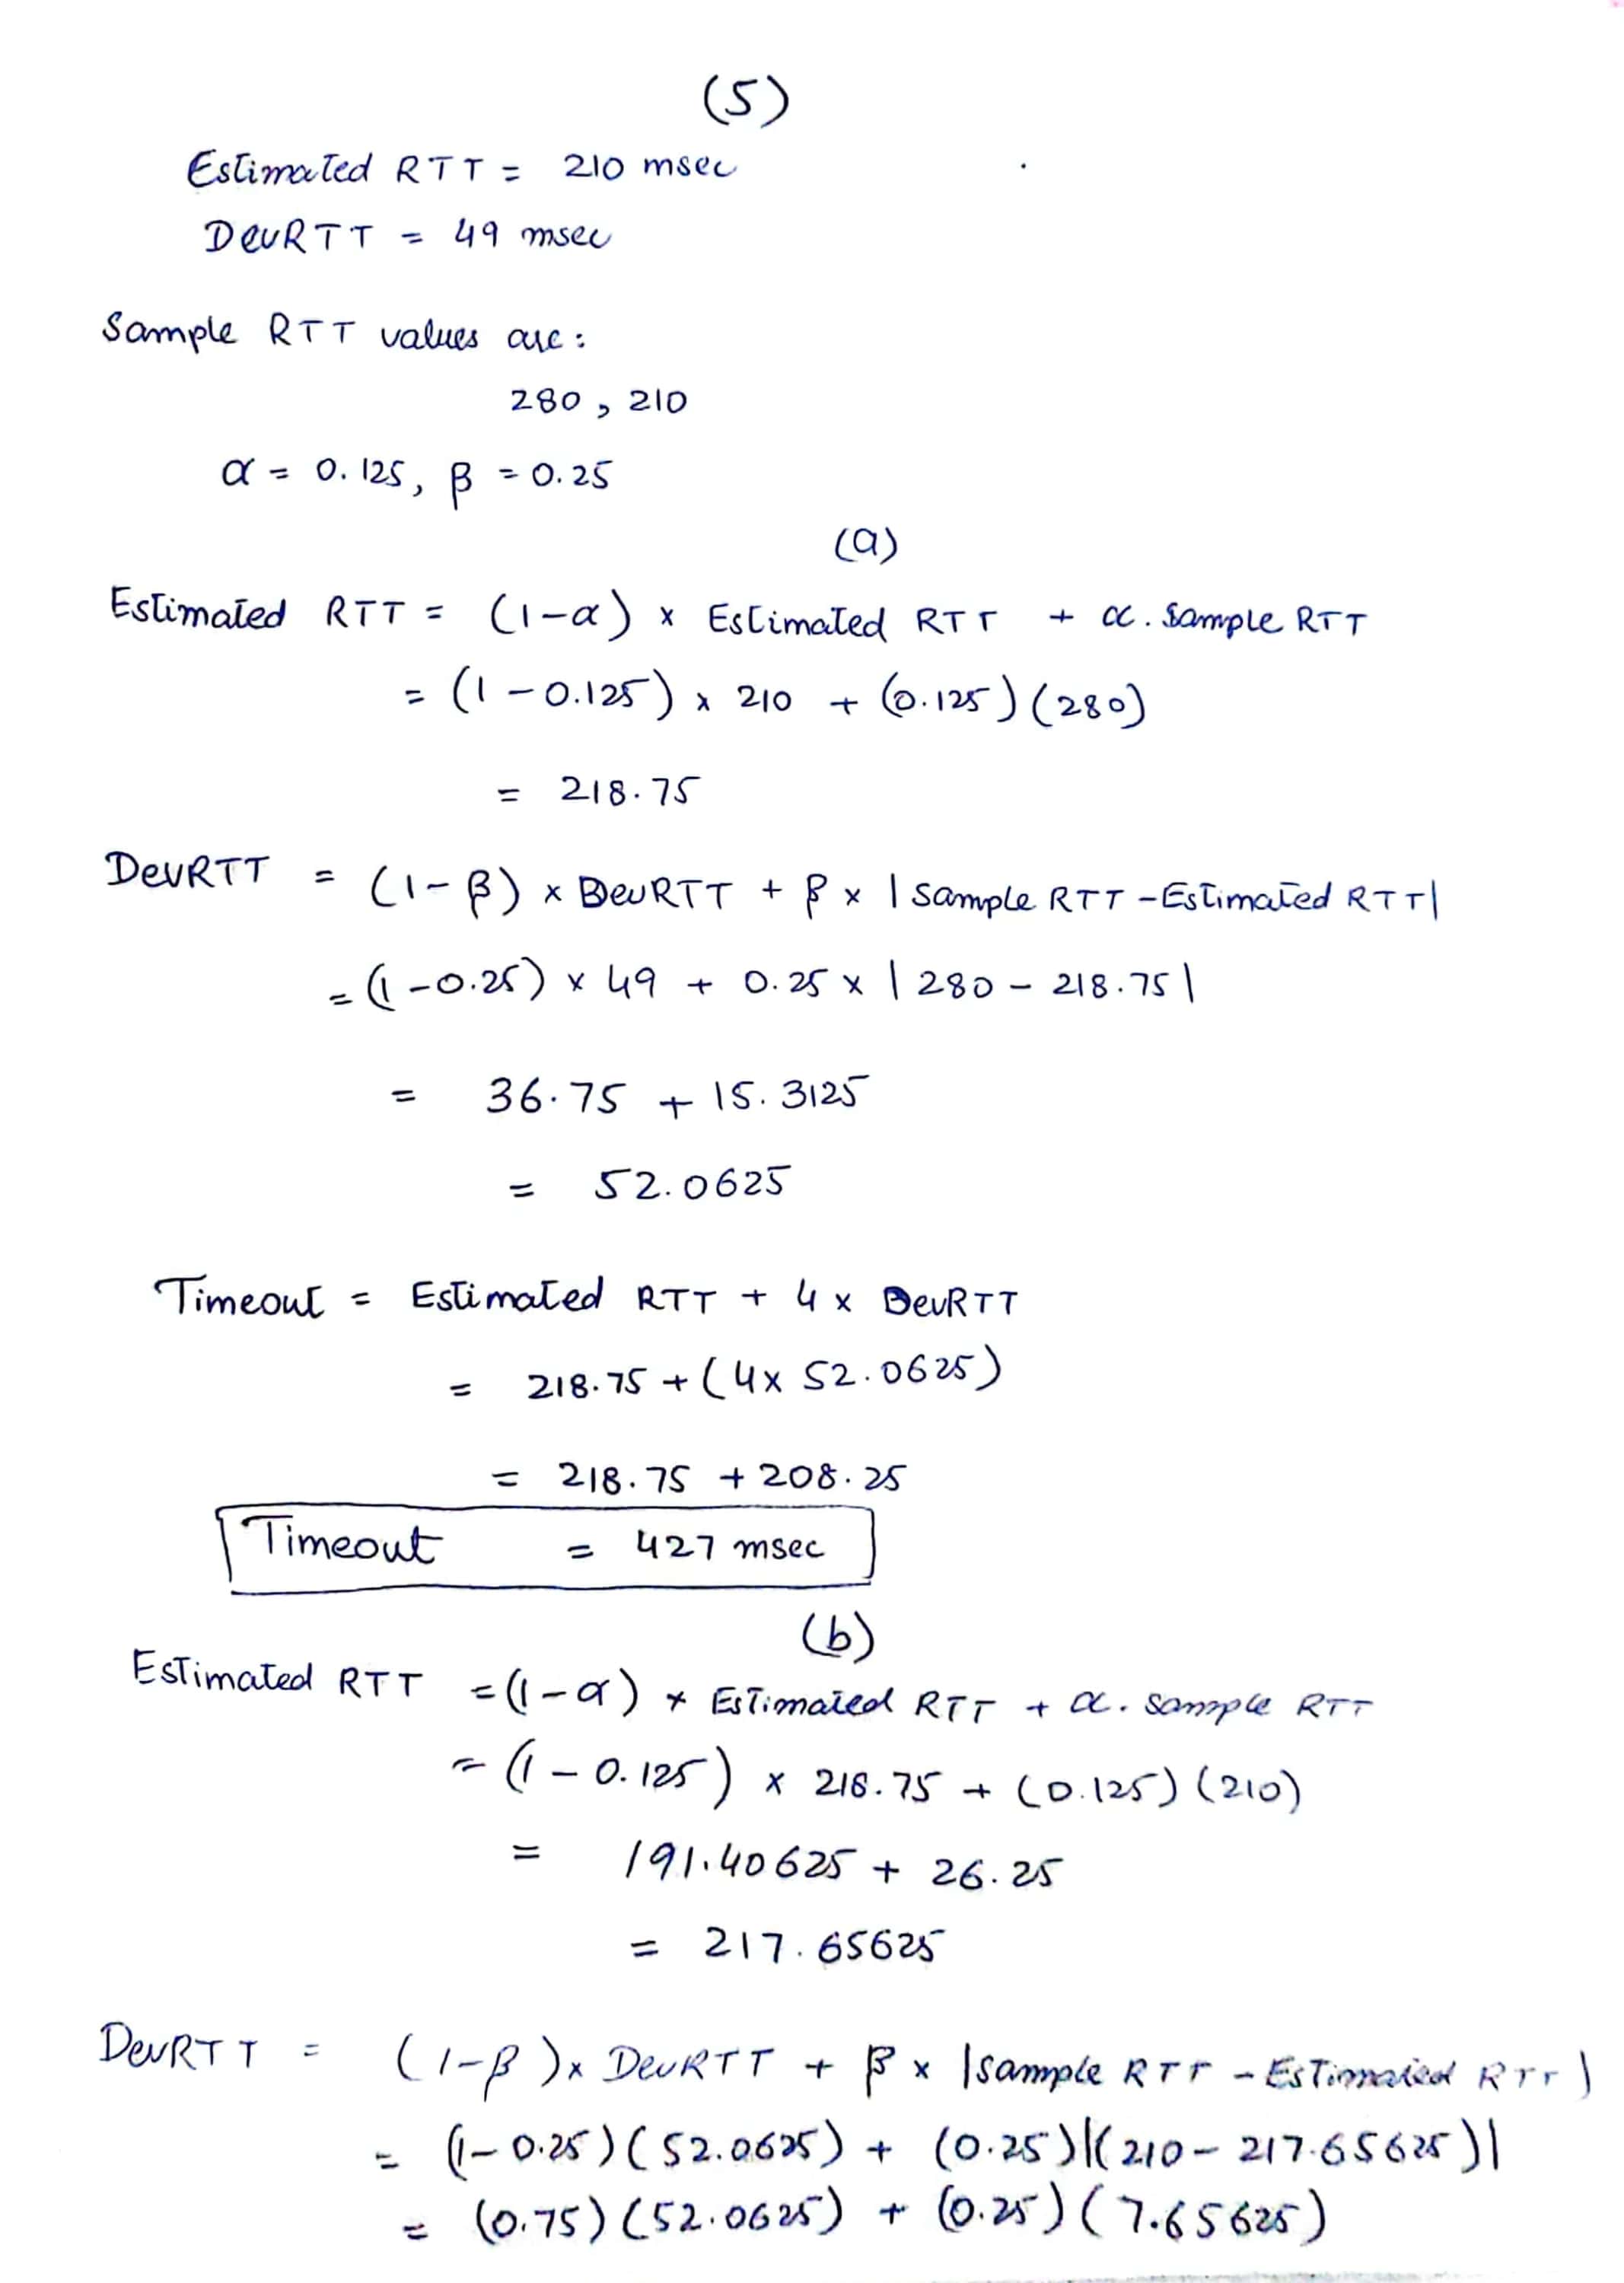 (5)
Estimated RTT = 210 msec
DevRTT = 49 msec
Sample RTT values are:
280, 210
α = 0.125, β = 0.25
(a)
Estimated RTT = (1-α) x Estimated RTT + α. Sample RTT
= (1-0.125) x 210 + (0.125)(280)
= 218.75
DevRTT = (1-β) x DevRTT + β x |Sample RTT - Estimated RTT|
= (1-0.25) x 49 + 0.25 x |280 - 218.75|
= 36.75 + 15.3125
= 52.0625
Timeout = Estimated RTT + 4 x DevRTT
= 218.75 + (4x 52.0625)
= 218.75 + 208.25
Timeout = 427 msec
(b)
Estimated RTT = (1-α) x Estimated RTT + α. Sample RTT
= (1-0.125) x 218.75 + (0.125)(210)
= 191.40625 + 26.25
= 217.65625
DevRTT = (1-β)x DevRTT + β x |Sample RTT - Estimated RTT|
= (1-0.25)(52.0625) + (0.25)|(210 - 217.65625)|
= (0.75)(52.0625) + (0.25)(7.65625)